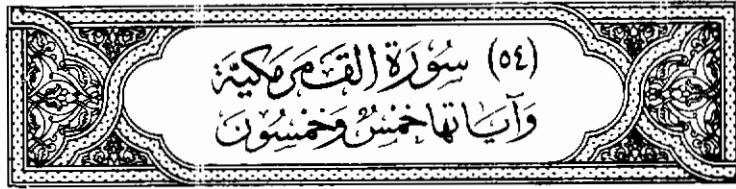 (٥٤) سُورَةُ القَمَرِ مَكيَّة
وَآيَاتُهَا خَمْسٌ وَخَمْسُونَ